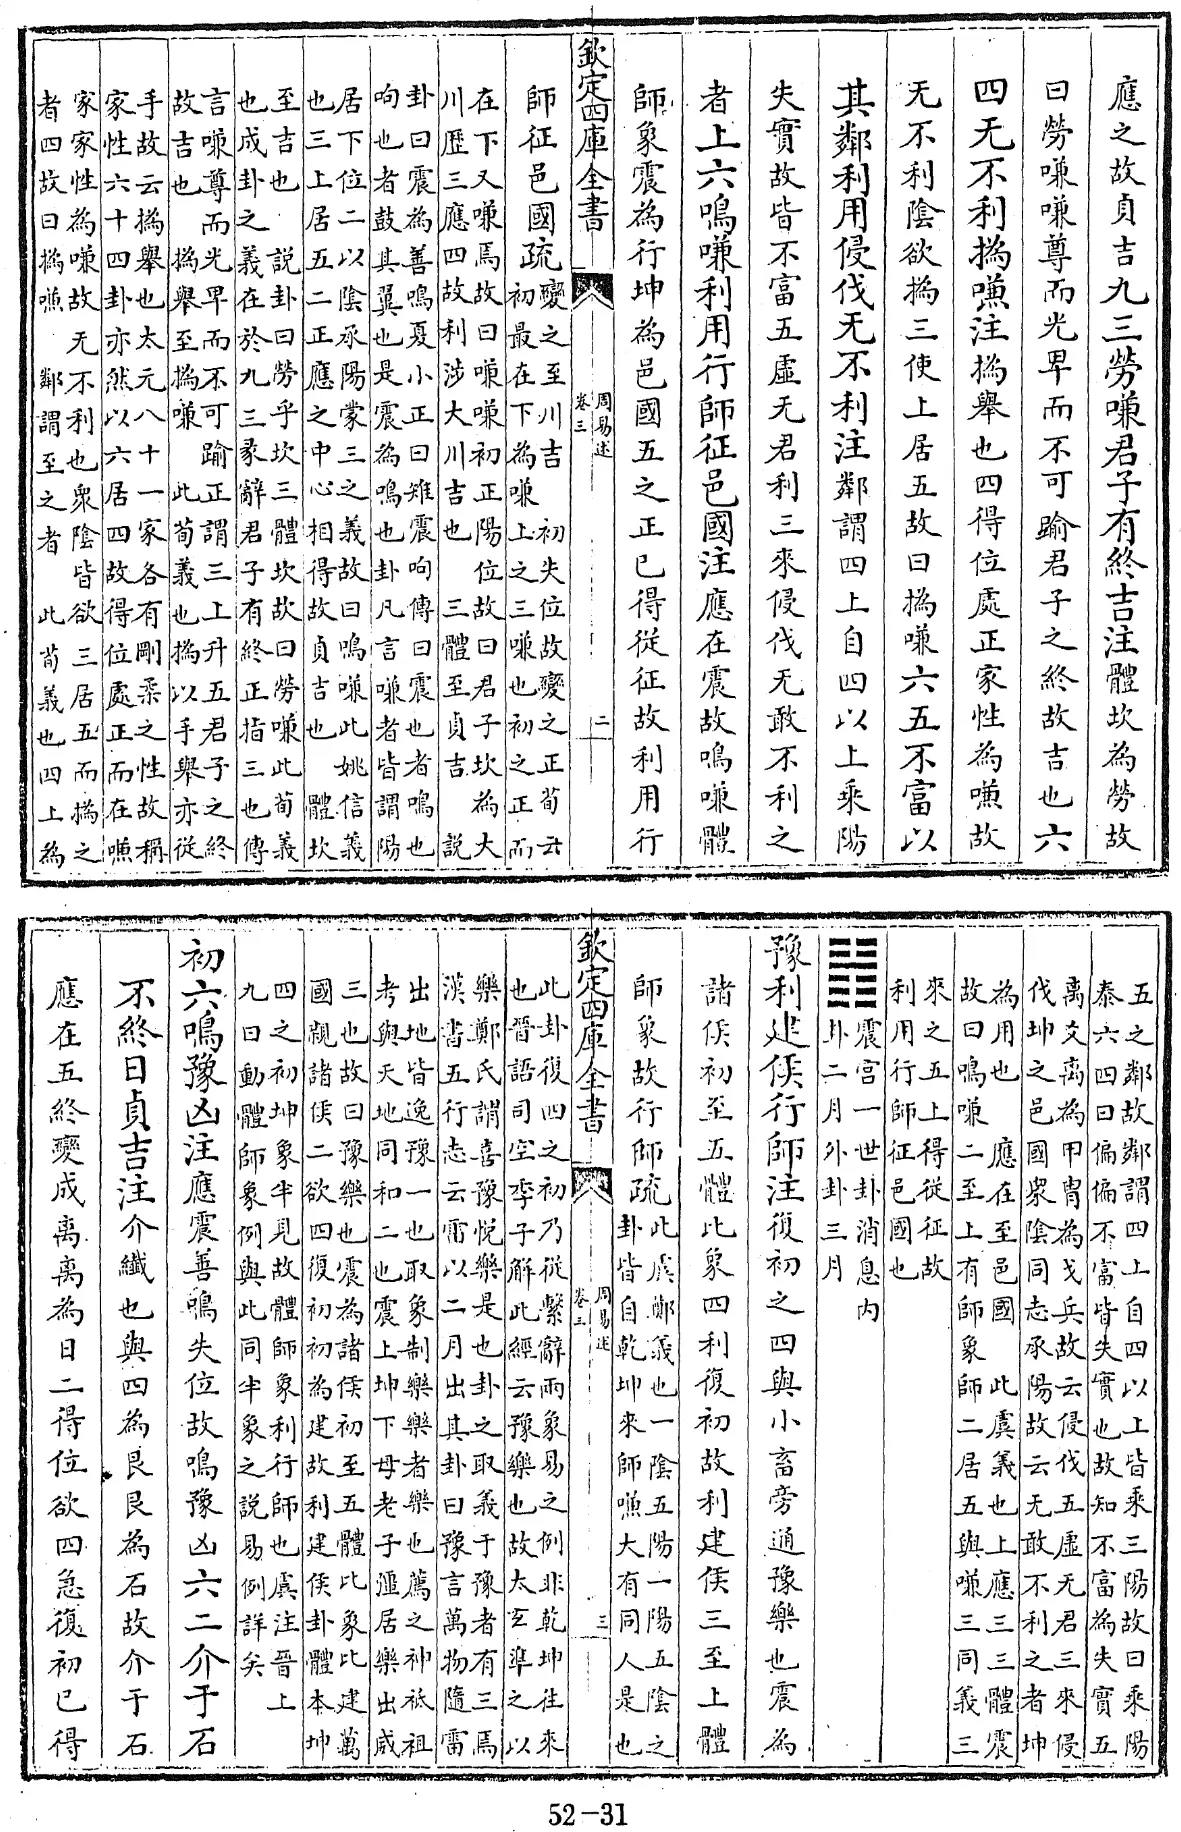 應之故貞吉九三勞嗛君子有終吉注體坎為勞故
曰勞嗛嗛尊而光卑而不可踰君子之終故吉也六
四无不利撝嗛注撝舉也四得位處正家性為嗛故
无不利陰欲撝三使上居五故曰撝嗛六五不富以
其鄰利用侵伐无不利注鄰謂四上自四以上乘陽
失實故皆不富五虛无君利三來侵伐无敢不利之
者上六鳴嗛利用行師征邑國注應在震故鳴嗛體
師象震為行坤為邑國五之正已得從征故利用行
欽定四庫全書
周易述
卷三
二
師征邑國疏
變之至川吉 初失位故變之正荀云
初最在下為嗛上之三嗛也初之正而
在下又嗛焉故曰嗛嗛初正陽位故曰君子坎為大
川歷三應四故利涉大川吉也 三體至貞吉 說
卦曰震為善鳴夏小正曰雉震呴傳曰震也者鳴也
呴也者鼓其翼也是震為鳴也卦凡言嗛者皆謂陽
居下位二以陰承陽蒙三之義故曰鳴嗛此姚信義
也三上居五二正應之中心相得故貞吉也 體坎
至吉也 說卦曰勞乎坎三體坎故曰勞嗛此荀義
也成卦之義在於九三彖辭君子有終正指三也傳
言嗛尊而光卑而不可踰正謂三上升五君子之終
故吉也 撝舉至撝嗛 此荀義也撝以手舉亦從
手故云撝舉也太元八十一家各有剛柔之性故稱
家性六十四卦亦然以六居四故得位處正而在嗛
家家性為嗛故无不利也衆陰皆欲三居五而撝之
者四故曰撝嗛 鄰謂至之者 此荀義也四上為
五之鄰故鄰謂四上自四以上皆乘三陽故曰乘陽
泰六四曰偏偏不富皆失實也故知不富為失實五
離爻離為甲胄為戈兵故云侵伐五虛无君三來侵
伐坤之邑國衆陰同志承陽故云无敢不利之者坤
為用也 應在至邑國 此虞義也上應三三體震
故曰鳴嗛二至上有師象師二居五與嗛三同義三
來之五上得從征故
利用行師征邑國也
震宮一世卦消息內
卦二月外卦三月
豫利建侯行師注復初之四與小畜旁通豫樂也震為
諸侯初至五體比象四利復初故利建侯三至上體
師象故行師疏
此虞鄭義也一陰五陽一陽五陰之
卦皆自乾坤來師嗛大有同人是也
欽定四庫全書
周易述
卷三
三
此卦復四之初乃從繫辭兩象易之例非乾坤往來
也晉語司空季子解此經云豫樂也故太玄準之以
樂鄭氏謂喜豫悅樂是也卦之取義于豫者有三焉
漢書五行志云雷以二月出其卦曰豫言萬物隨雷
出地皆逸豫一也取象制樂樂者樂也薦之神祇祖
考與天地同和二也震上坤下母老子彊居樂出威
三也故曰豫樂也震為諸侯初至五體比象比建萬
國親諸侯二欲四復初初為建故利建侯卦體本坤
四之初坤象半見故體師象利行師也虞注晉上
九曰動體師象例與此同半象之說易例詳矣
初六鳴豫凶注應震善鳴失位故鳴豫凶六二介于石
不終日貞吉注介纖也與四為艮艮為石故介于石
應在五終變成离离為日二得位欲四急復初已得
52-31